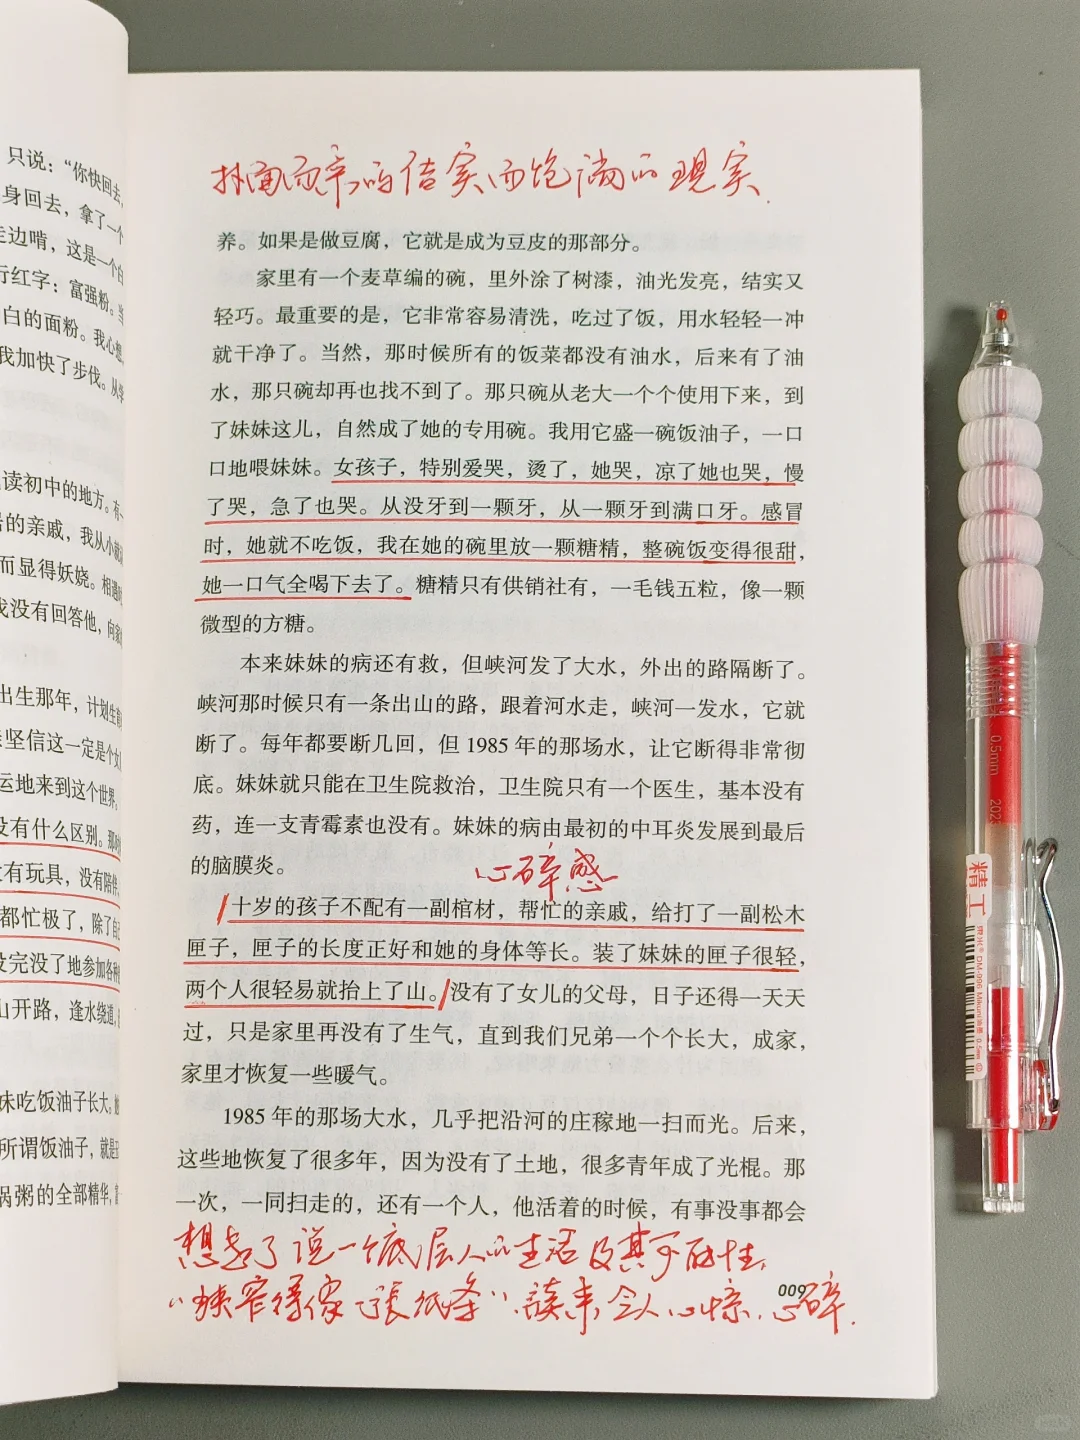 只说：“你快回去，
身回去，拿了一个
边啃，这是一个白
行红字：富强粉。当
白的面粉。我心想，
我加快了步伐。从学
读初中的地方。有一
的亲戚，我从小就
而显得妖娆。相遇
我没有回答他，向家
出生那年，计划生育
坚信这一定是个女
运地来到这个世界。
没有什么区别。那时
没有玩具，没有陪伴，
都忙极了，除了自己
没完没了地参加各种
山开路，逢水绕道，
妹吃饭油子长大。
所谓饭油子，就是
锅粥的全部精华，
扑面而来的结实而饱满的现实
养。如果是做豆腐，它就是成为豆皮的那部分。
家里有一个麦草编的碗，里外涂了树漆，油光发亮，结实又
轻巧。最重要的是，它非常容易清洗，吃过了饭，用水轻轻一冲
就干净了。当然，那时候所有的饭菜都没有油水，后来有了油
水，那只碗却再也找不到了。那只碗从老大一个个使用下来，到
了妹妹这儿，自然成了她的专用碗。我用它盛一碗饭油子，一口
口地喂妹妹。女孩子，特别爱哭，烫了，她哭，凉了她也哭，慢
了哭，急了也哭。从没牙到一颗牙，从一颗牙到满口牙。感冒
时，她就不吃饭，我在她的碗里放一颗糖精，整碗饭变得很甜，
她一口气全喝下去了。糖精只有供销社有，一毛钱五粒，像一颗
微型的方糖。
本来妹妹的病还有救，但峡河发了大水，外出的路隔断了。
峡河那时候只有一条出山的路，跟着河水走，峡河一发水，它就
断了。每年都要断几回，但 1985 年的那场水，让它断得非常彻
底。妹妹就只能在卫生院救治，卫生院只有一个医生，基本没有
药，连一支青霉素也没有。妹妹的病由最初的中耳炎发展到最后
的脑膜炎。
心碎感
十岁的孩子不配有一副棺材，帮忙的亲戚，给打了一副松木
匣子，匣子的长度正好和她的身体等长。装了妹妹的匣子很轻，
两个人很轻易就抬上了山。没有了女儿的父母，日子还得一天天
过，只是家里再没有了生气，直到我们兄弟一个个长大，成家，
家里才恢复一些暖气。
1985 年的那场大水，几乎把沿河的庄稼地一扫而光。后来，
这些地恢复了很多年，因为没有了土地，很多青年成了光棍。那
一次，一同扫走的，还有一个人，他活着的时候，有事没事都会
想起了说一个底层人的生活及其可能性，
“狭窄得像一张纸条”，读来令人心惊，心碎.
009
0.5mm
精工